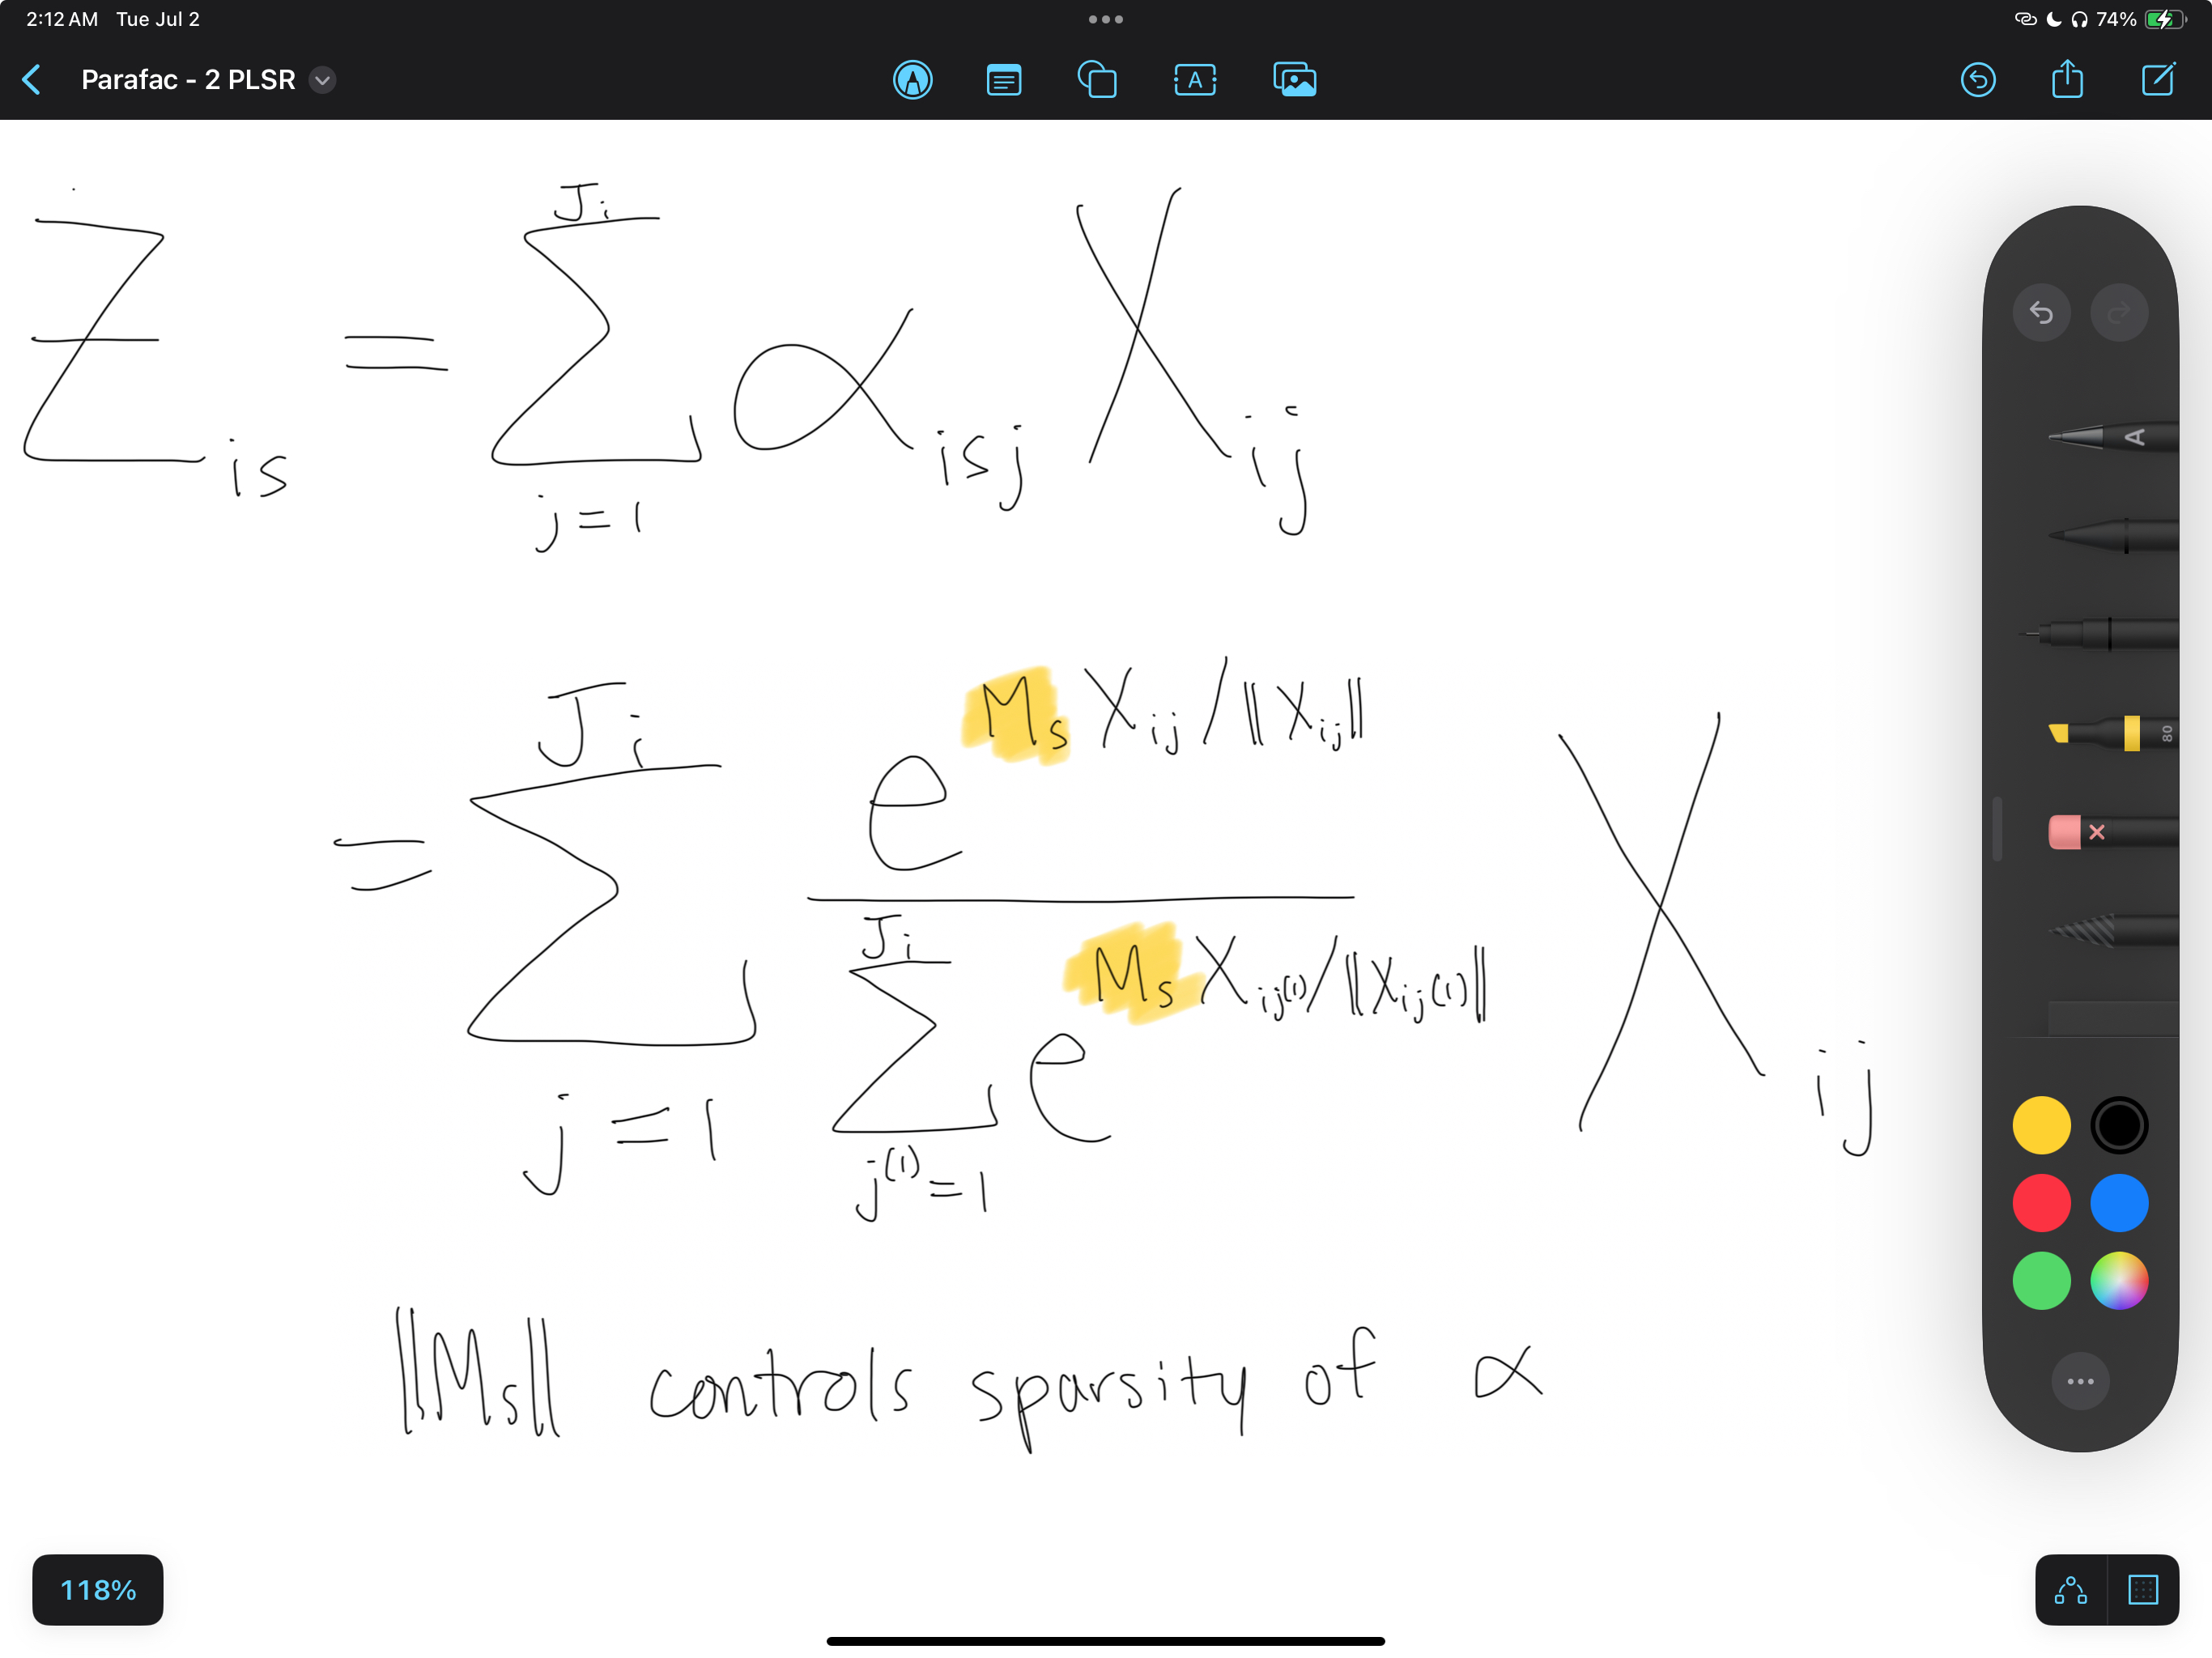 2:12 AM Tue Jul 2
74%
Parafac - 2 PLSR
A
A
80
Z_is = Σ_{j=1}^{J_i} α_isj X_ij
= Σ_{j=1}^{J_i} e^{M_s X_ij / ||X_ij||} / Σ_{j^(1)=1}^{J_i} e^{M_s X_ij^(1) / ||X_ij^(1)||} X_ij
||M_s|| controls sparsity of α
118%